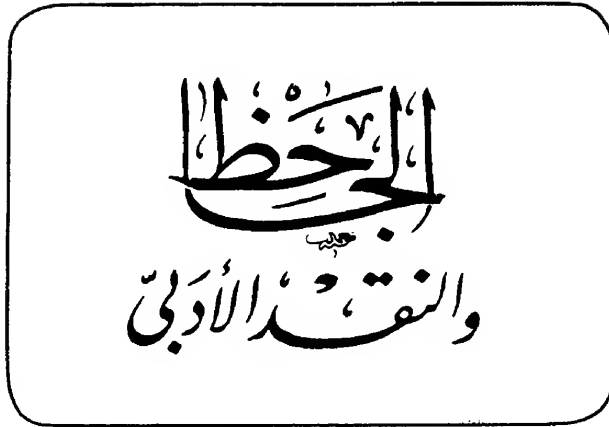 الجاحظ
والنقد الأدبيّ